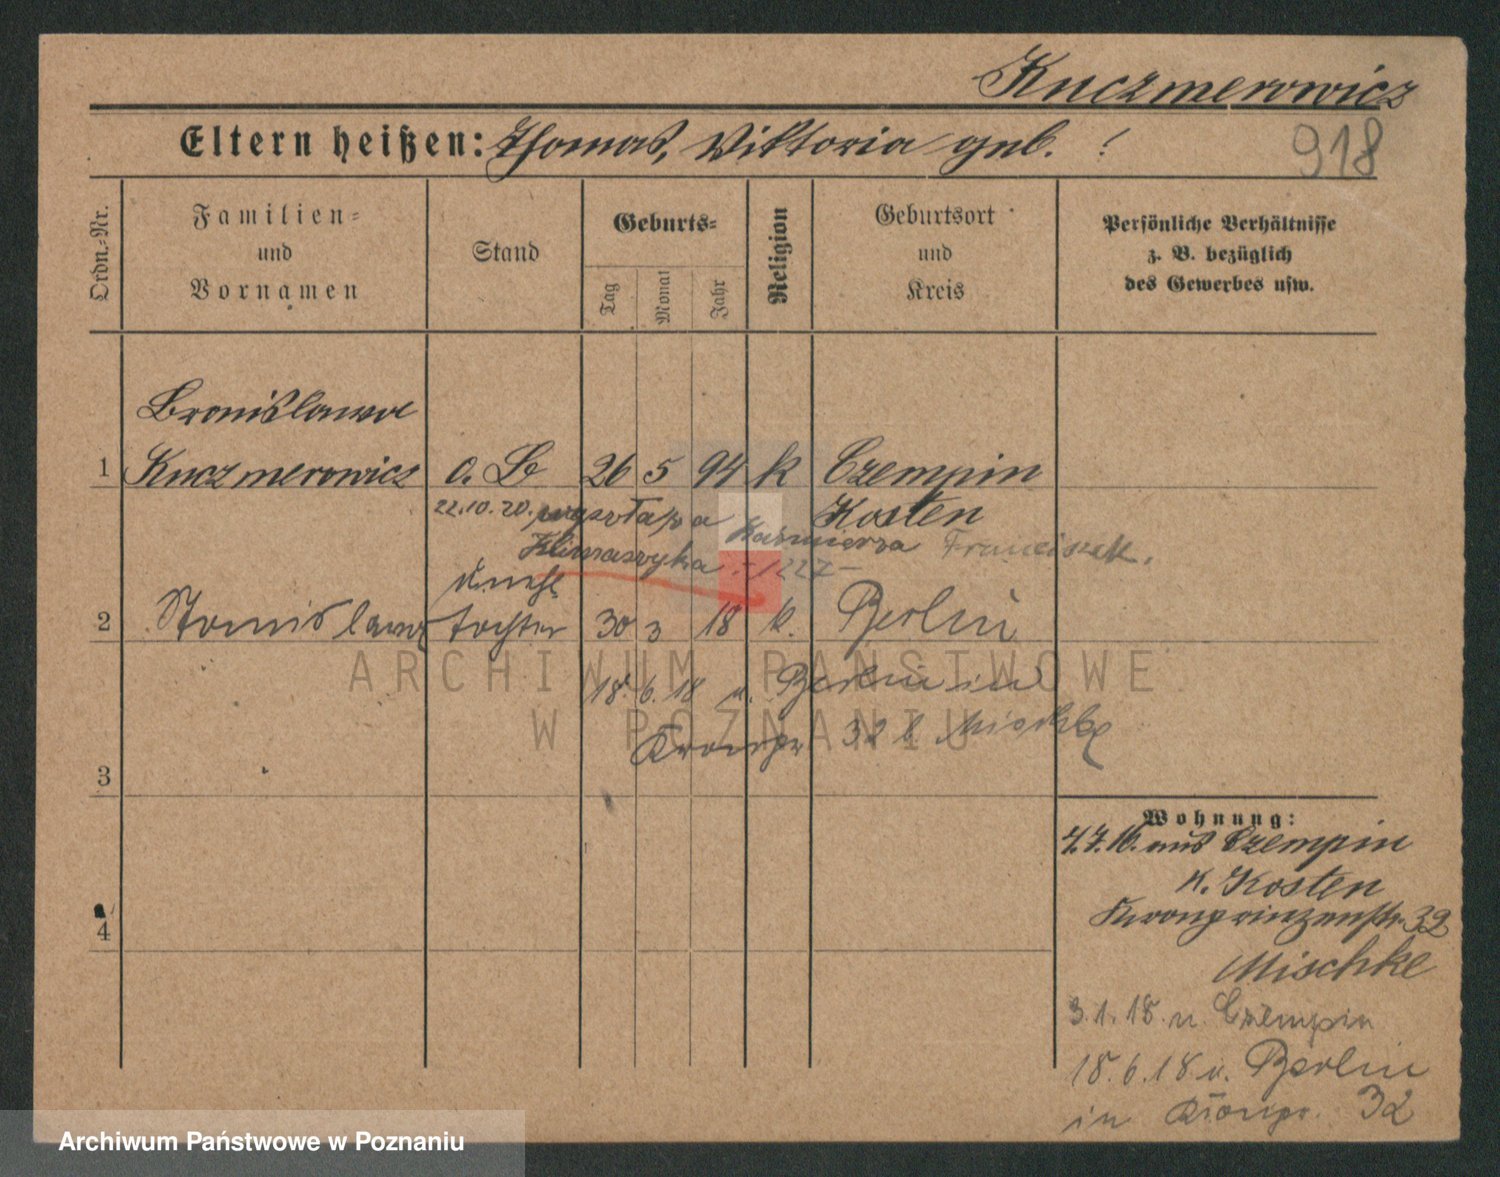 Kuczmerowicz
Eltern heißen: Thomas, Viktoria geb. !
918
Ordn.-Nr.
Familien-
und
Vornamen
Stand
Geburts-
Tag
Monat
Jahr
Religion
Geburtsort
und
Kreis
Persönliche Verhältnisse
z. B. bezüglich
des Gewerbes usw.
Bronislawa
1 Kuczmerowicz o. B 26 5 94 k Czempin
22.10.20. Kosten
Kazimierza Franciszek.
unehl
2 Stanislawa tochter 30 3 18 k. Berlin
18.6.18 Berlin in
Kronpr 32 b. Mischke
3
4
Wohnung:
4.7.16. aus Czempin
K. Kosten
Kronprinzenstr. 32
Mischke
3.1.18. n. Czempin
18.6.18. Berlin
in Kronpr. 32
ARCHIWUM PAŃSTWOWE
W POZNANIU
Archiwum Państwowe w Poznaniu